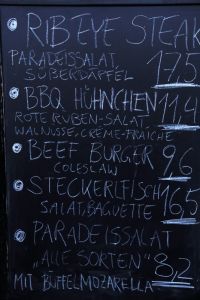 RIBEYE STEAK
PARADEISSALAT,
SÜBERDÄPFEL 17,5
BBQ HÜHNCHEN 11,4
ROTE RÜBEN-SALAT,
WALNÜSSE, CRÈME-FRAÎCHE
BEEF BURGER 9,6
COLESLAW
STECKERLFISCH 16,5
SALAT, BAGUETTE
PARADEISSALAT
"ALLE SORTEN" 8,2
MIT BÜFFELMOZARELLA